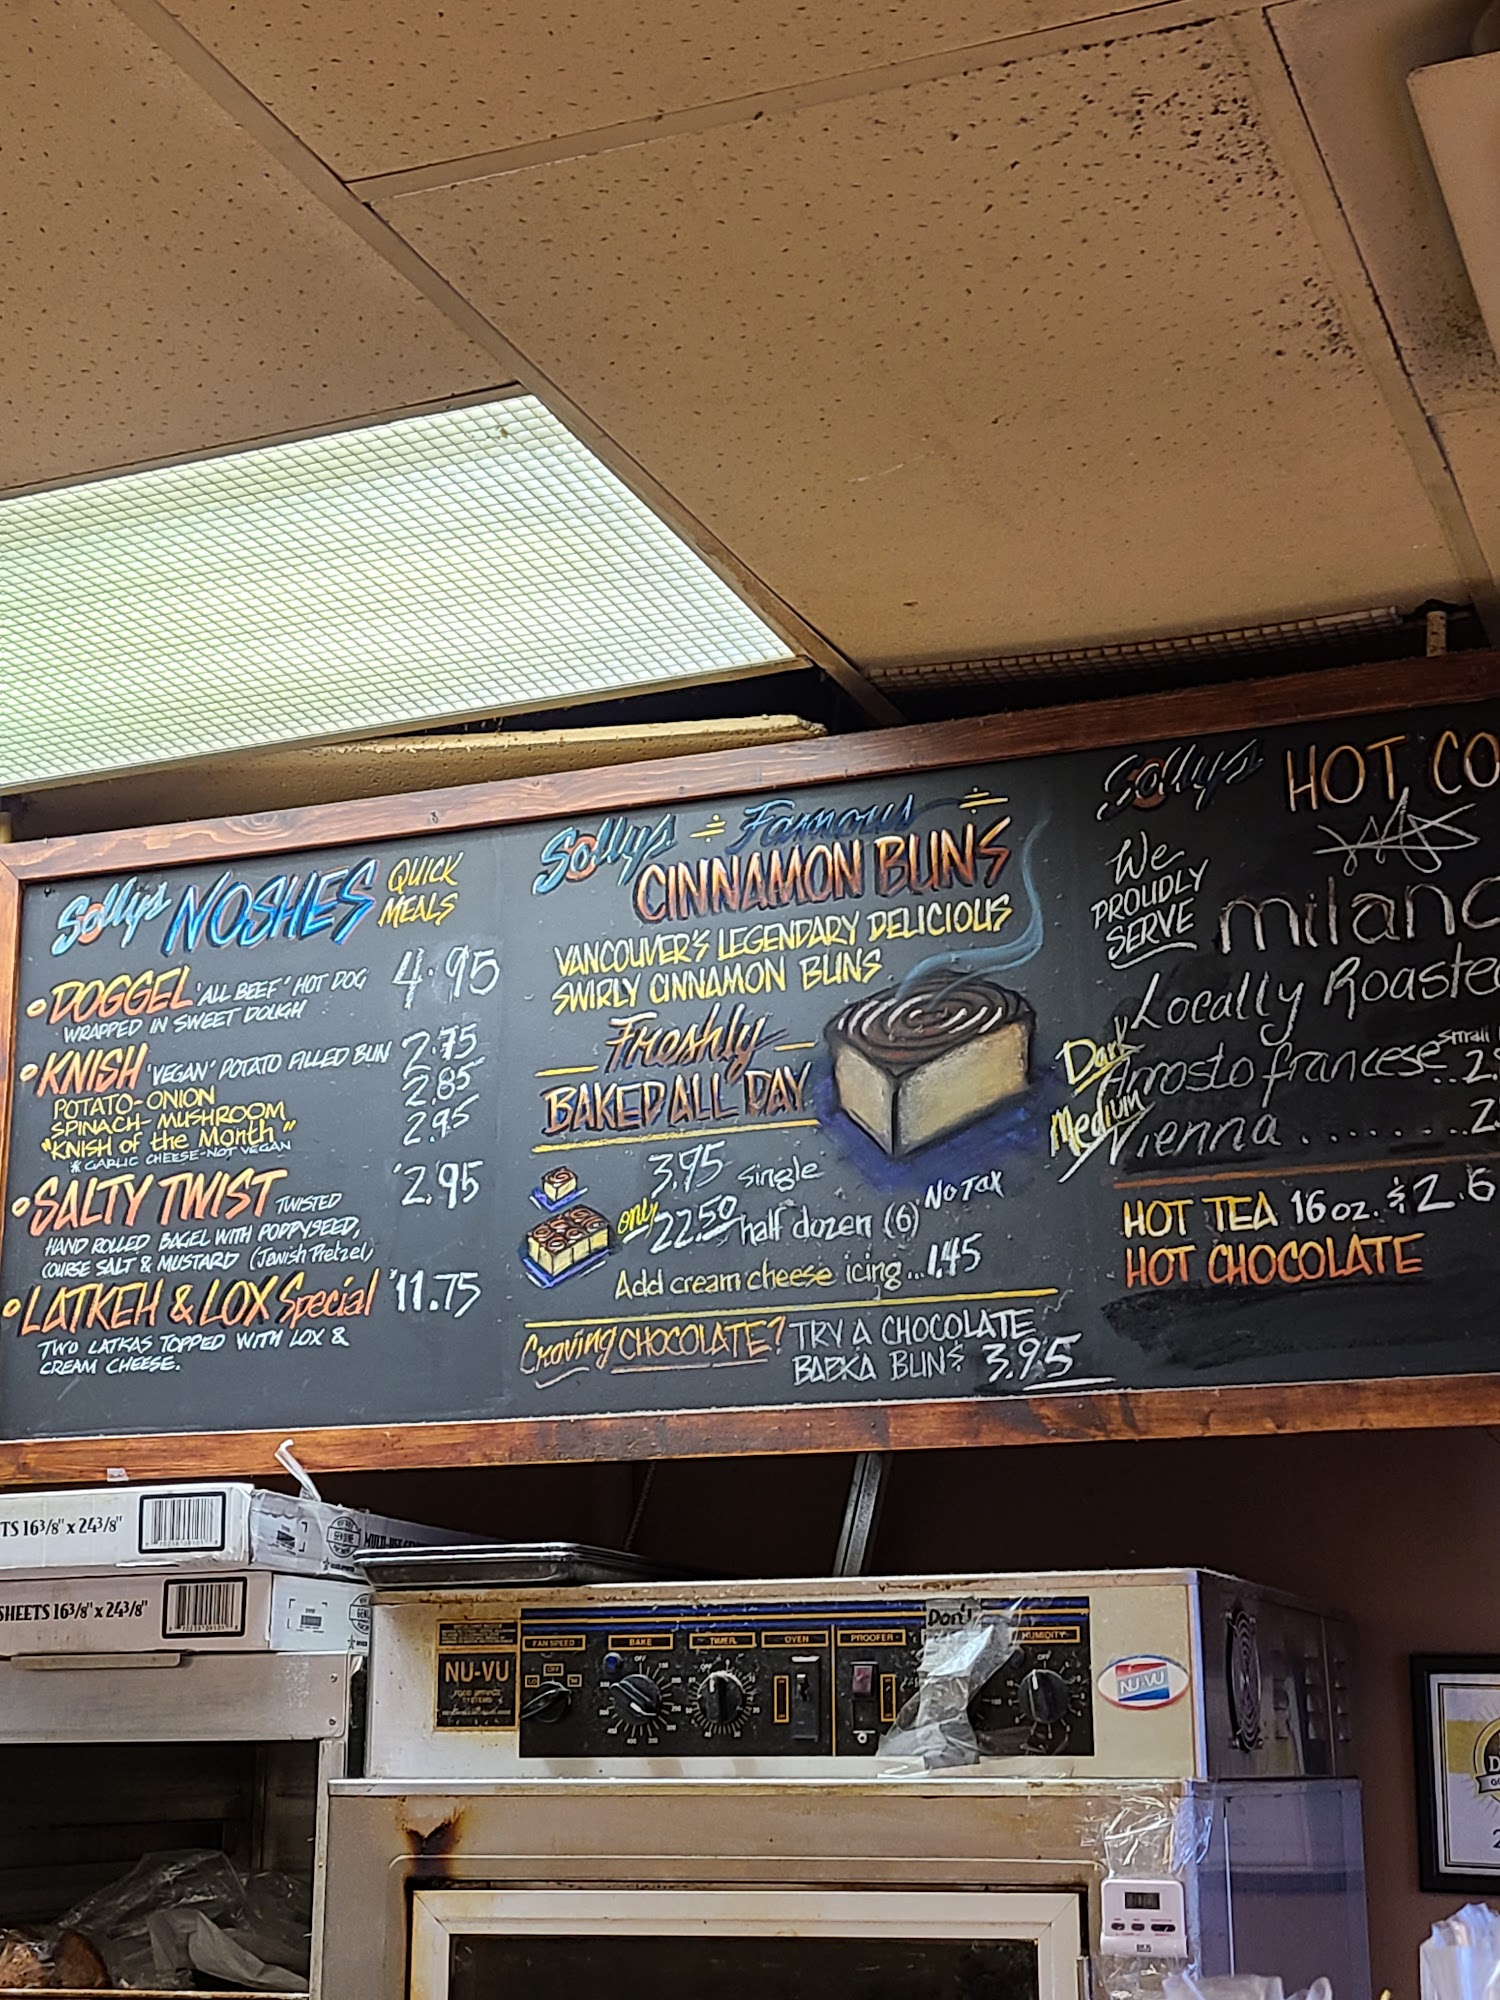 Solly's NOSHES QUICK MEALS
DOGGEL 'ALL BEEF' HOT DOG 4.95
WRAPPED IN SWEET DOUGH
KNISH 'VEGAN' POTATO FILLED BUN 2.75
POTATO-ONION 2.85
SPINACH-MUSHROOM
"KNISH of the Month" 2.95
* GARLIC CHEESE-NOT VEGAN
SALTY TWIST TWISTED 2.95
HAND ROLLED BAGEL WITH POPPYSEED,
COURSE SALT & MUSTARD (Jewish Pretzel)
LATKEH & LOX Special 11.75
TWO LATKAS TOPPED WITH LOX &
CREAM CHEESE.
Solly's Famous
CINNAMON BUNS
VANCOUVER'S LEGENDARY DELICIOUS
SWIRLY CINNAMON BUNS
Freshly
BAKED ALL DAY
3.95 single
only 22.50 half dozen (6) NO TAX
Add cream cheese icing...1.45
Craving CHOCOLATE? TRY A CHOCOLATE
BABKA BUNS 3.95
Solly's HOT CO
We
PROUDLY
SERVE
milano
Locally Roaste
Dark Arrosto francese small
Medium Vienna
HOT TEA 16 oz. $2.6
HOT CHOCOLATE
TS 16 3/8" x 24 3/8"
SHEETS 16 3/8" x 24 3/8"
NU-VU
FOOD SERVICE
SYSTEMS
FAN SPEED
BAKE
TIMER
OVEN
PROOFER
Don't
HUMIDITY
OFF
LO
HI
NU-VU